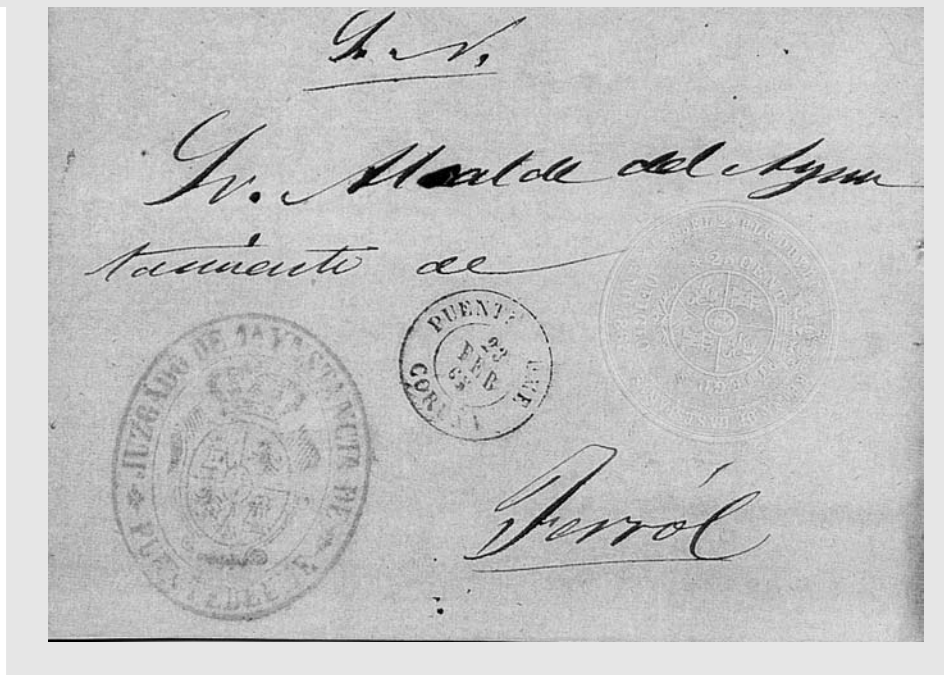 S. N.
Sr. Alcalde del Ayun
tamiento de
PUENT
EUME
23
FEB
CORUÑA
JUZGADO DE 1ª YNSTANCIA DE
PUENTEDEUME
Ferról